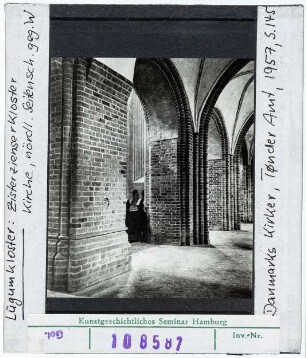 Lügumkloster: Zisterzienserkloster
Kirche, nördl. Seitensch. geg. W
Danmarks Kirker, Tønder Amt, 1957, S.145
Kunstgeschichtliches Seminar Hamburg
Got.
108587
Inv.-Nr.